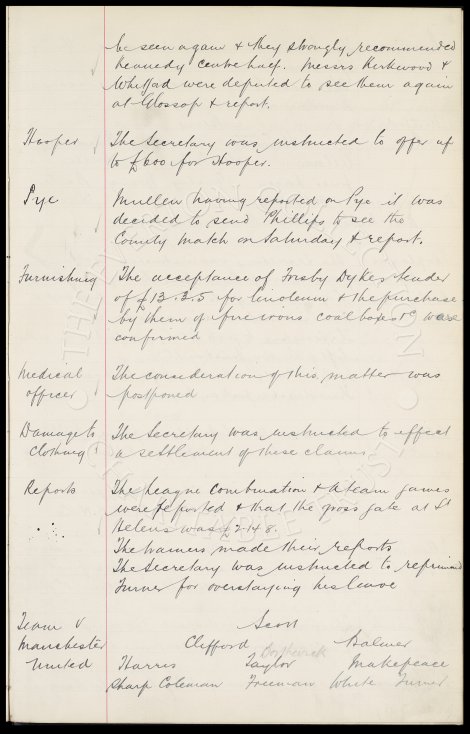 be seen again & they strongly recommended
Kennedy centre half. Messrs Kirkwood &
Whitford were deputed to see them again
at Glossop & report.
Hooper The Secretary was instructed to offer up
to £600 for Hooper.
Pye Mullen having reported on Pye it was
decided to send Phillips to see the
County Match on Saturday & report.
Furnishing The acceptance of Frisby Dykes tender
of £13.3.5 for linoleum & the purchase
by them of fire irons coal boxes &c were
confirmed
Medical The consideration of this matter was
officer postponed
Damage to The Secretary was instructed to effect
Clothing a settlement of these claims
Reports The League Combination & A team games
were reported & that the gross gate at St
Helens was £7.14.8.
The trainers made their reports
The Secretary was instructed to reprimand
Turner for overstaying his leave
Team v Scott
Manchester Clifford Balmer
United Harris Taylor Borthwick Makepeace
Sharp Coleman Freeman White Turner